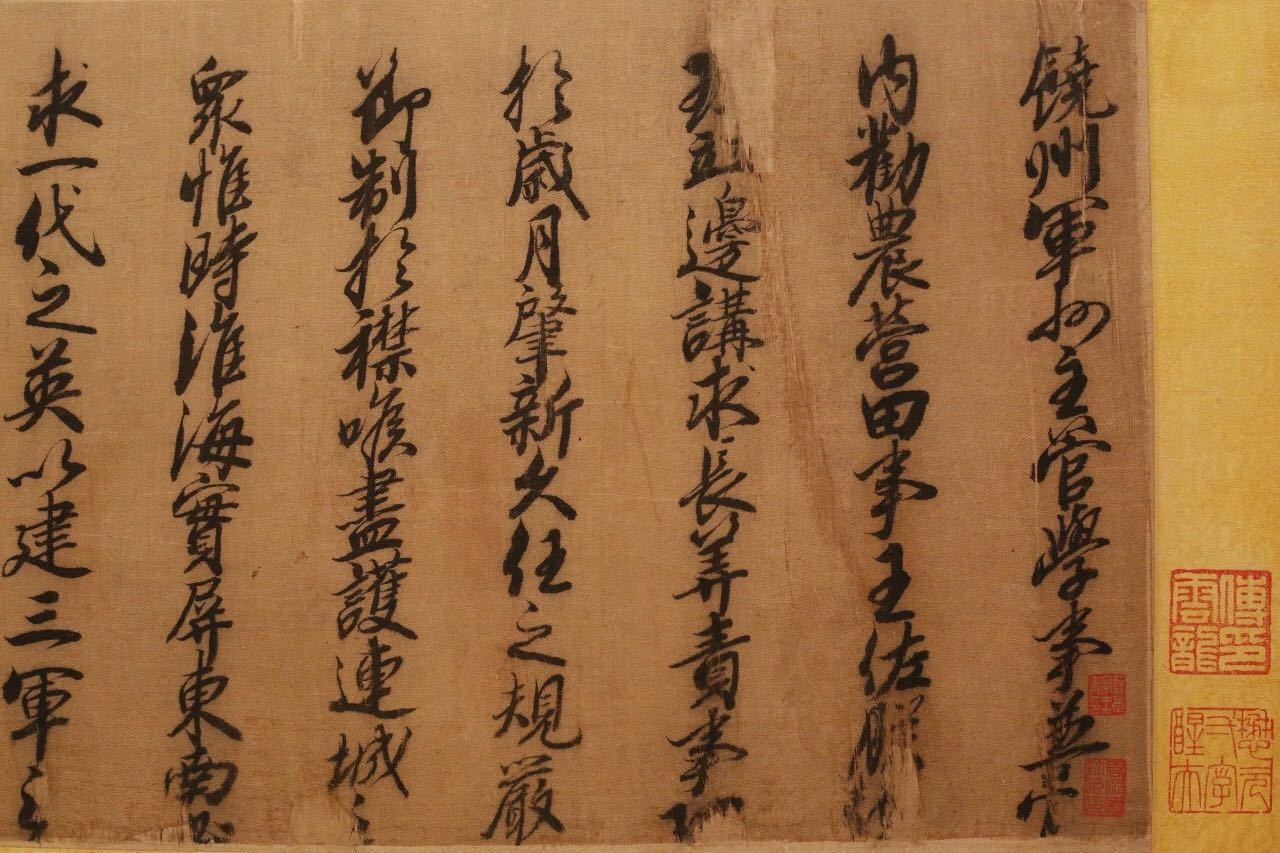 饒州軍州主管學事兼管
內勸農營田事王佐朕
五邊講求長筭責事
於歲月肇新久任之規嚴
節制於襟喉盡護連城之
眾惟時淮海實屏東南
求一代之英以建三軍之